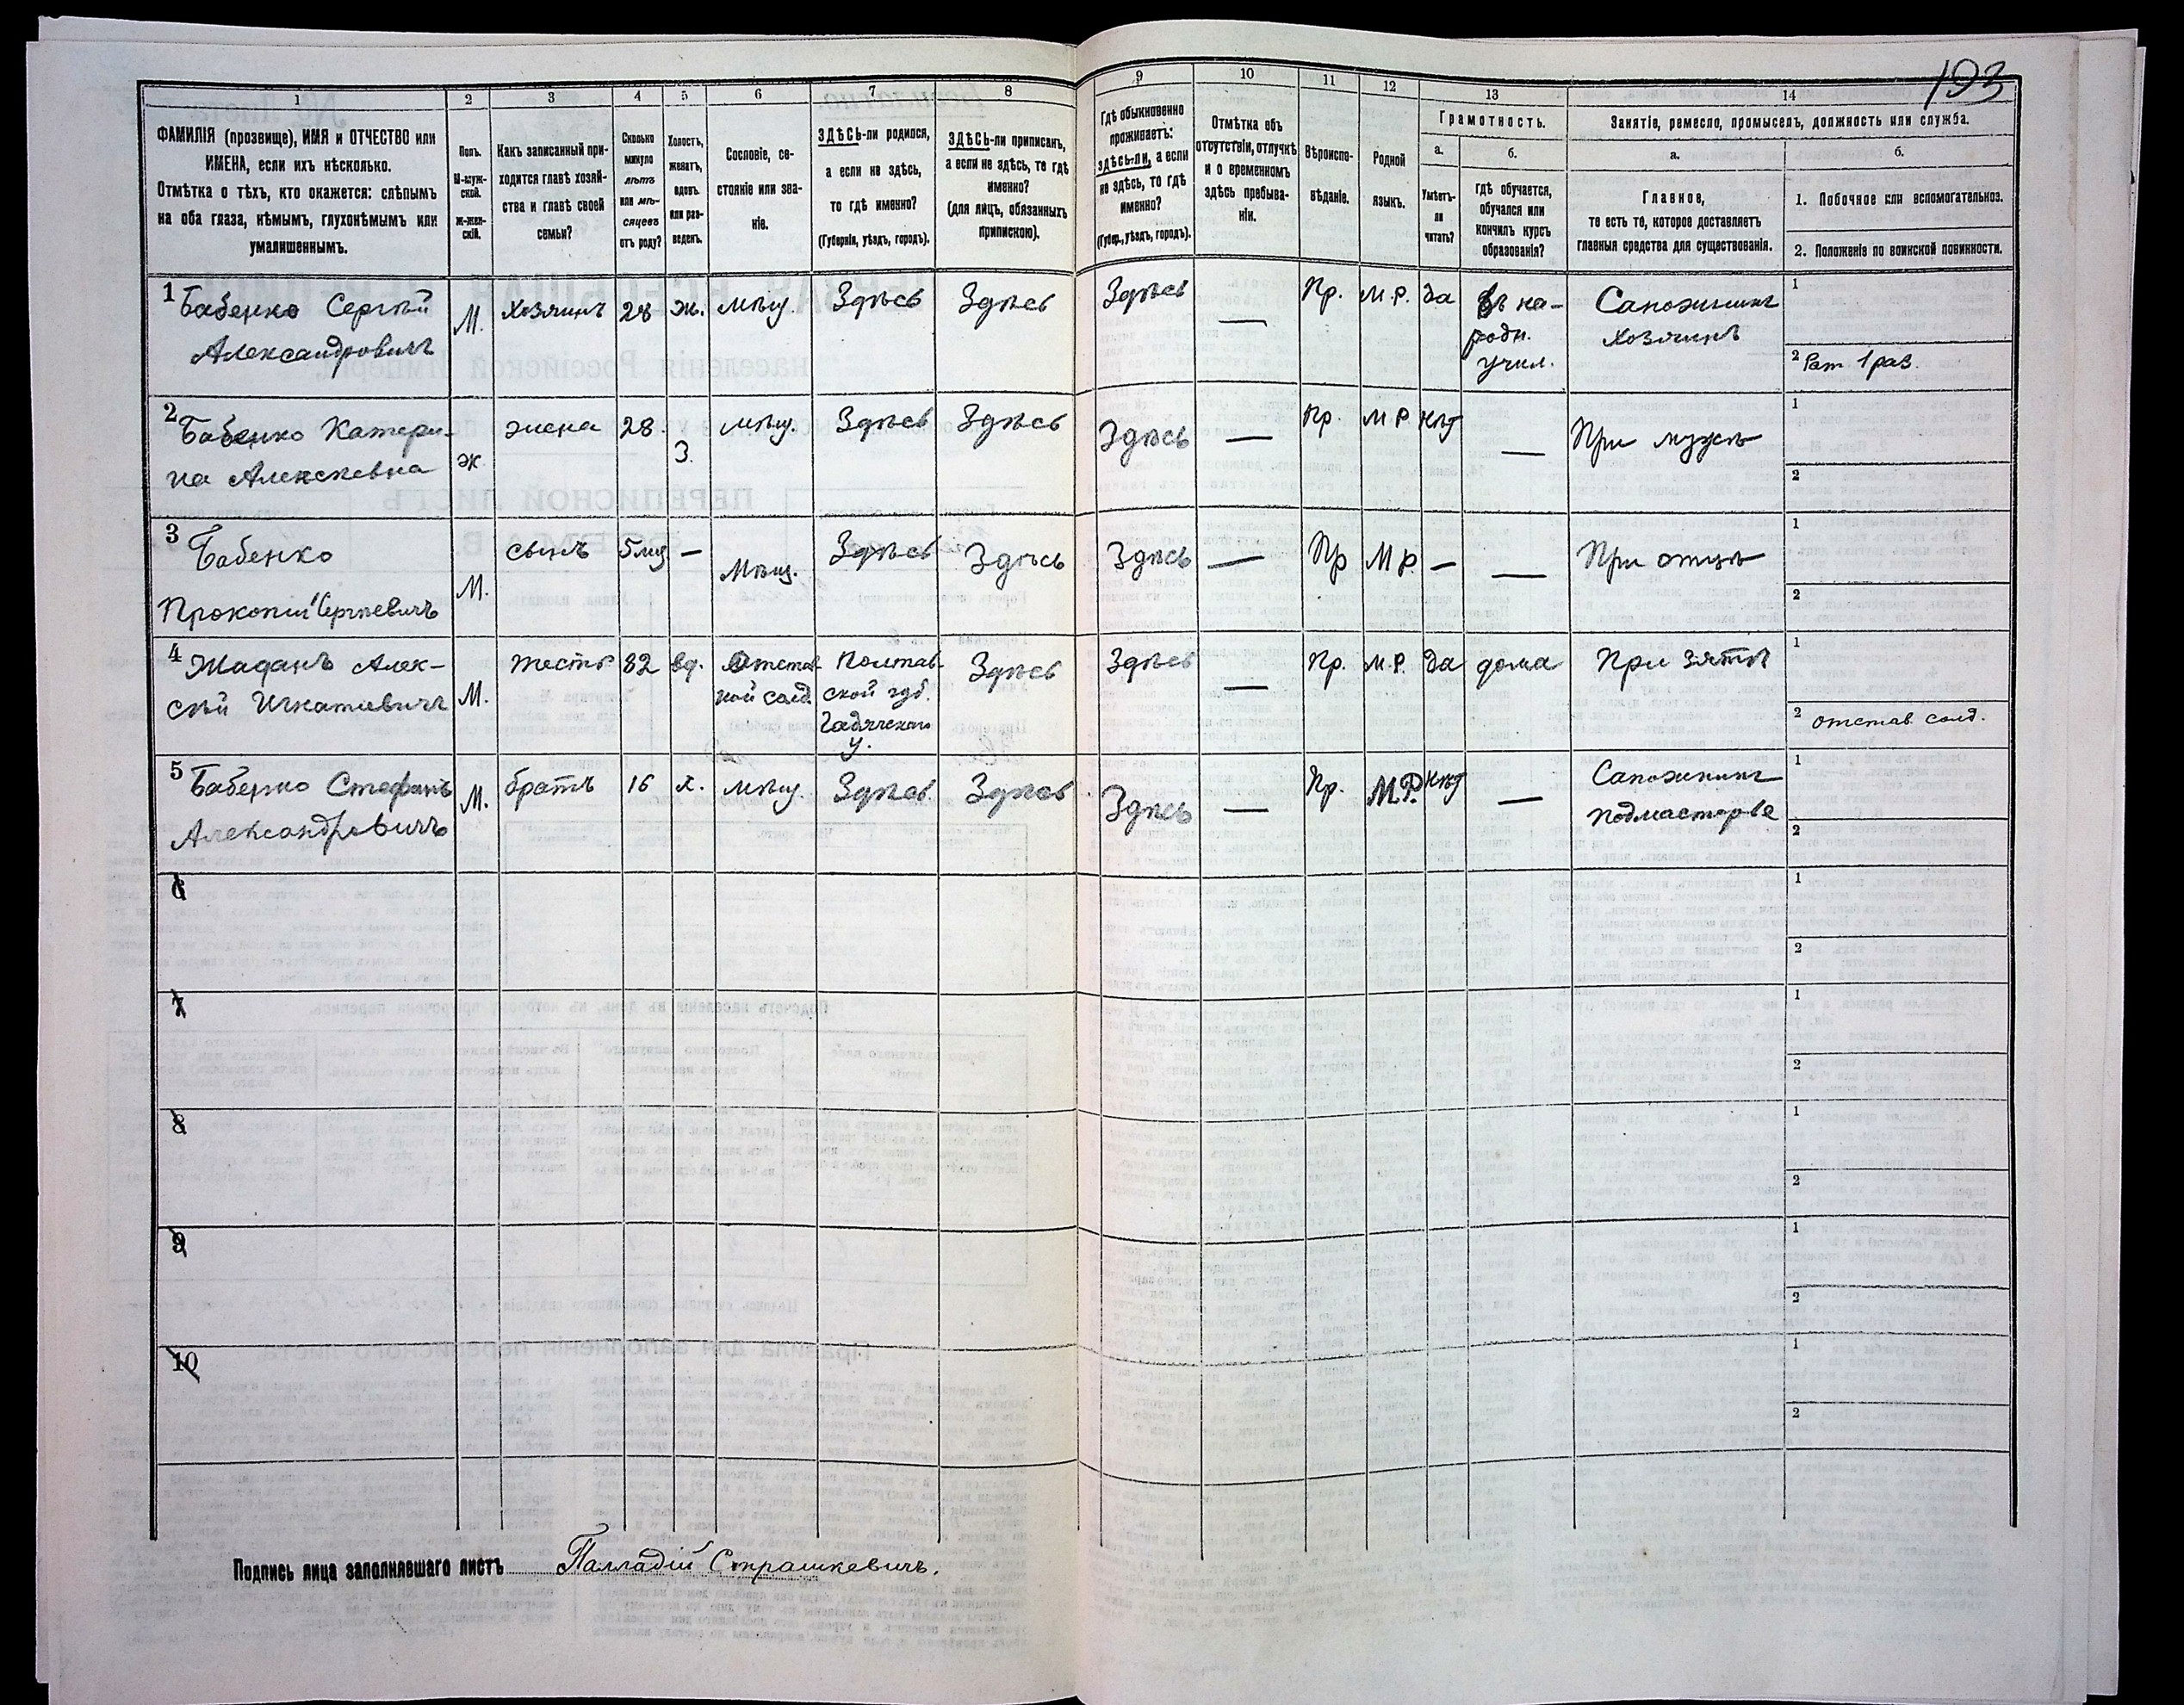 193
1 2 3 4 5 6 7 8 9 10 11 12 13 14
ФАМИЛІЯ (прозвище), ИМЯ и ОТЧЕСТВО или
ИМЕНА, если ихъ нѣсколько.
Отмѣтка о тѣхъ, кто окажется: слѣпымъ
на оба глаза, нѣмымъ, глухонѣмымъ или
умалишеннымъ.
Полъ.
М-муж-
ской.
Ж-жен-
скій.
Какъ записанный при-
ходится главѣ хозяй-
ства и главѣ своей
семьи?
Сколько
минуло
лѣтъ
или мѣ-
сяцевъ
отъ роду?
Холостъ,
женатъ,
вдовъ
или раз-
веденъ.
Сословіе, со-
стояніе или зва-
ніе.
ЗДѢСЬ-ли родился,
а если не здѣсь,
то гдѣ именно?
(Губернія, уѣздъ, городъ).
ЗДѢСЬ-ли приписанъ,
а если не здѣсь, то гдѣ
именно?
(для лицъ, обязанныхъ
припискою).
Гдѣ обыкновенно
проживаетъ:
здѣсь-ли, а если
не здѣсь, то гдѣ
именно?
(Губер., уѣздъ, городъ).
Отмѣтка объ
отсутствіи, отлучкѣ
и о временномъ
здѣсь пребыва-
ніи.
Вѣроиспо-
вѣданіе.
Родной
языкъ.
Грамотность.
а.
Умѣетъ-
ли
читать?
б.
Гдѣ обучается,
обучался или
кончилъ курсъ
образованія?
Занятіе, ремесло, промыселъ, должность или служба.
а.
Главное,
то есть то, которое доставляетъ
главныя средства для существованія.
б.
1. Побочное или вспомогательное.
2. Положеніе по воинской повинности.
1 Бабенко Сергѣй
Александровичъ
М.
Хозяинъ
28
Ж.
мѣщ.
Здѣсь
Здѣсь
Здѣсь
—
Пр.
М.Р.
Да
въ на-
родн.
учил.
Сапожникъ
хозяинъ
1
2 Рат 1 раз.
2 Бабенко Катери-
на Алексѣевна
ж
жена
28.
З.
мѣщ.
Здѣсь
Здѣсь
Здѣсь
—
Пр.
М Р
нѣт
—
При мужѣ
1
2
3 Бабенко
Прокопій Сергѣевичъ
М.
сынъ
5 мц
—
Мѣщ.
Здѣсь
Здѣсь
Здѣсь
—
Пр
М Р.
—
—
При отцѣ
1
2
4 Жаданъ Алек-
сѣй Игнатіевичъ
М.
тесть
82
вд.
Отстав-
ной солд
Полтав-
ской губ.
Гадячскаго
у.
Здѣсь
Здѣсь
—
Пр.
М.Р.
Да
дома
При зятѣ
1
2 отстав. солд.
5 Бабенко Стефанъ
Александровичъ
М.
братъ
16
х.
мѣщ.
Здѣсь
Здѣсь
Здѣсь
—
Пр.
М.Р.
нѣт
—
Сапожникъ
подмастерье
1
2
6
1
2
7
1
2
8
1
2
9
1
2
10
1
2
Подпись лица заполнявшаго листъ Палладій Страшкевичъ.